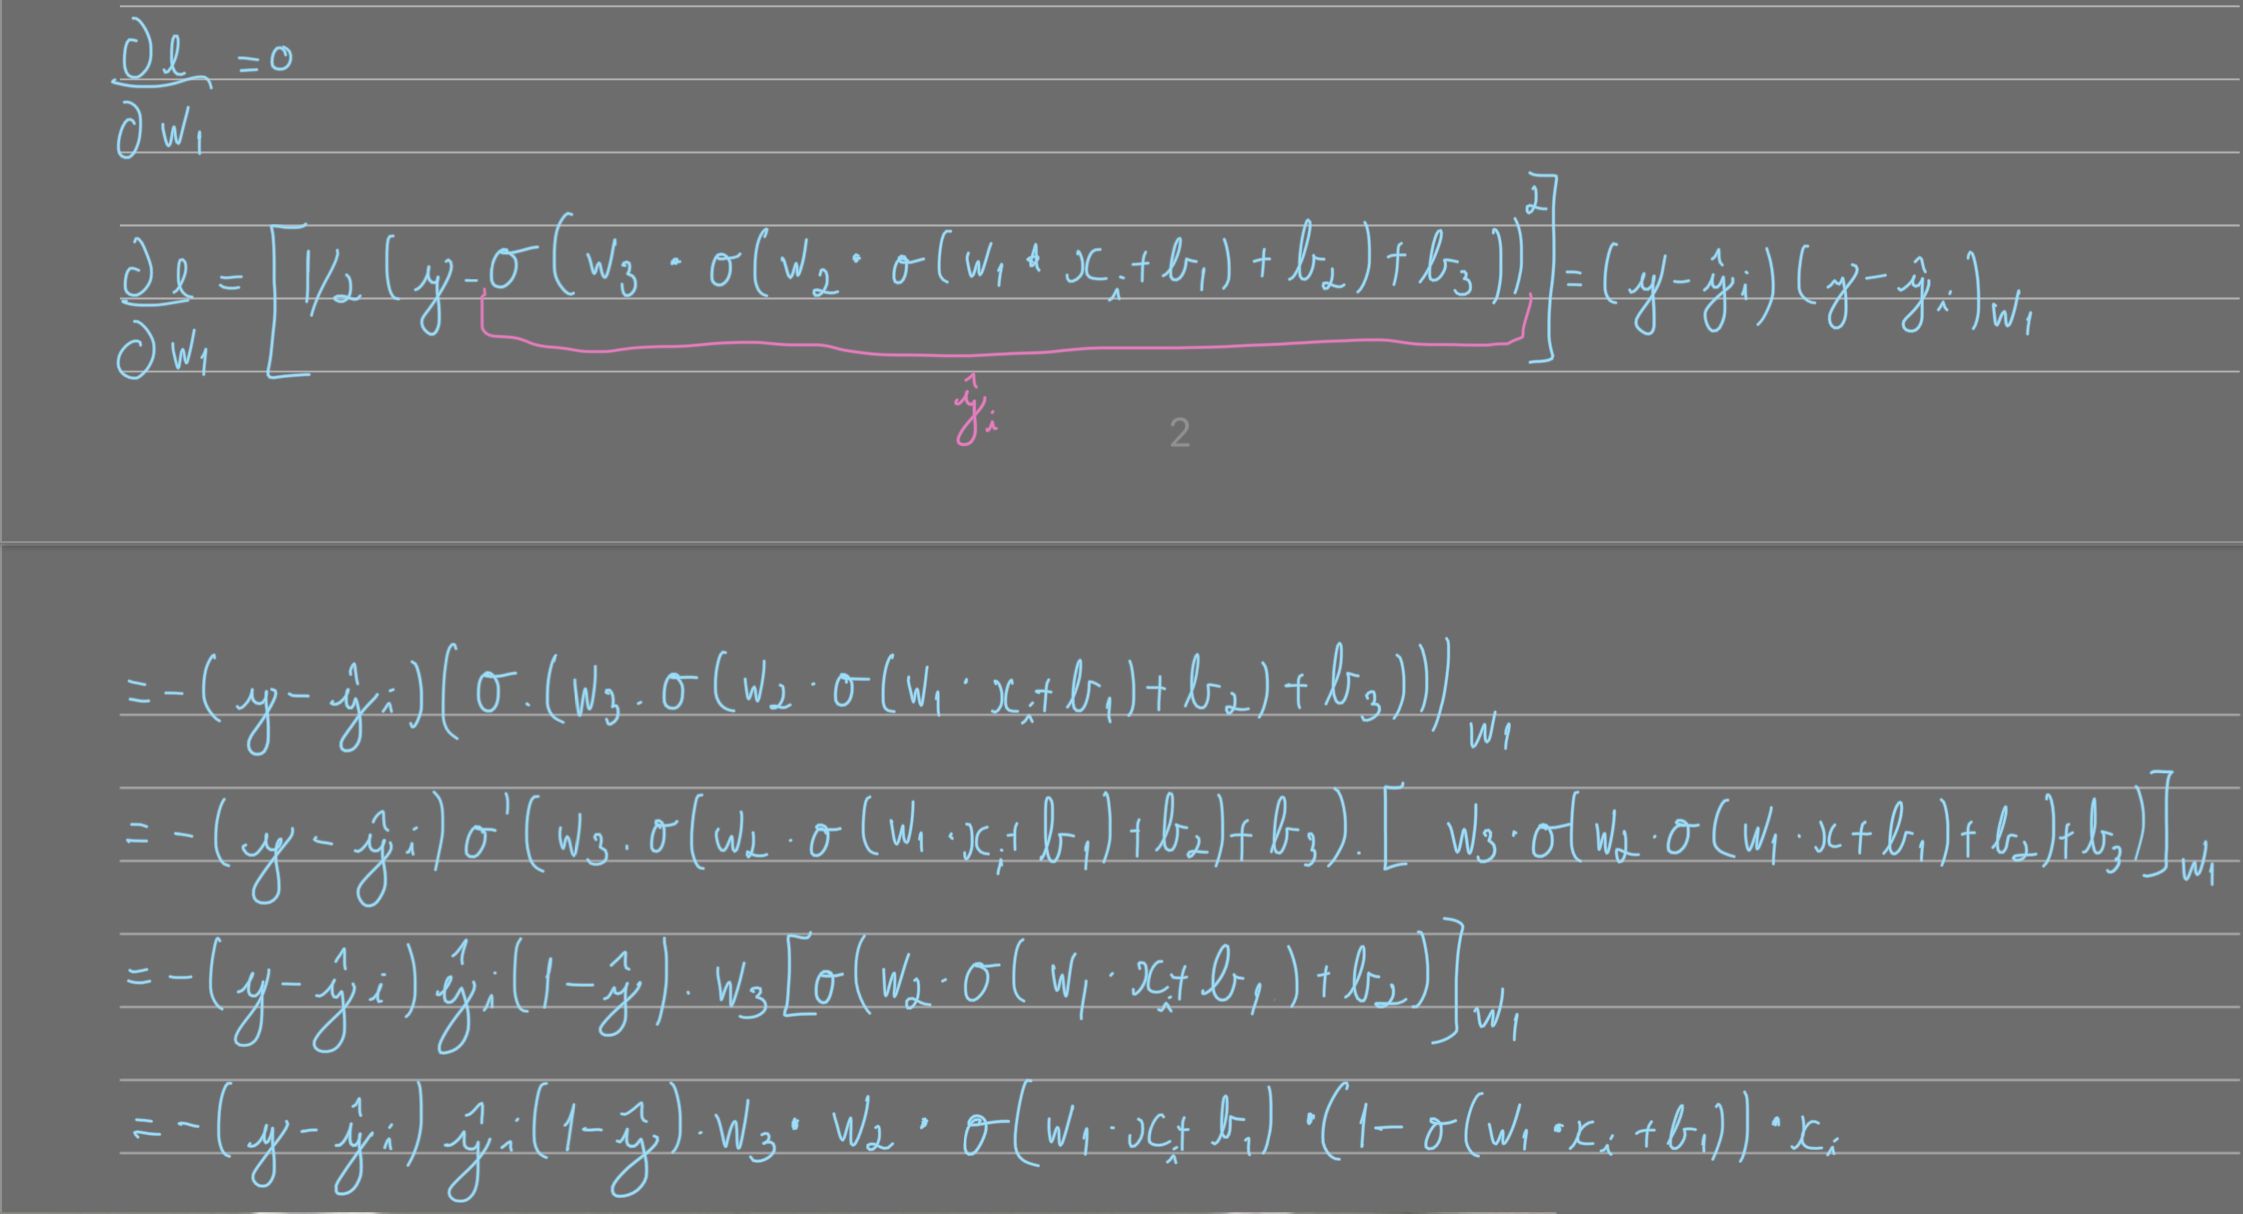 ∂l/∂w₁ = 0
∂l/∂w₁ = [1/2 (y - σ(w₃ · σ(w₂ · σ(w₁ · xᵢ + b₁) + b₂) + b₃))²] = (y - ŷᵢ)(y - ŷᵢ)w₁
ŷᵢ
2
= -(y - ŷᵢ)(σ·(w₃ · σ(w₂ · σ(w₁ · xᵢ + b₁) + b₂) + b₃)))w₁
= -(y - ŷᵢ) σ'(w₃ · σ(w₂ · σ(w₁ · xᵢ + b₁) + b₂) + b₃) · [w₃ · σ(w₂ · σ(w₁ · x + b₁) + b₂) + b₃)]w₁
= -(y - ŷᵢ) ŷᵢ(1 - ŷ) · w₃ [σ(w₂ · σ(w₁ · xᵢ + b₁) + b₂)]w₁
= -(y - ŷᵢ) ŷᵢ(1 - ŷ) · w₃ · w₂ · σ(w₁ · xᵢ + b₁) · (1 - σ(w₁ · xᵢ + b₁)) · xᵢ